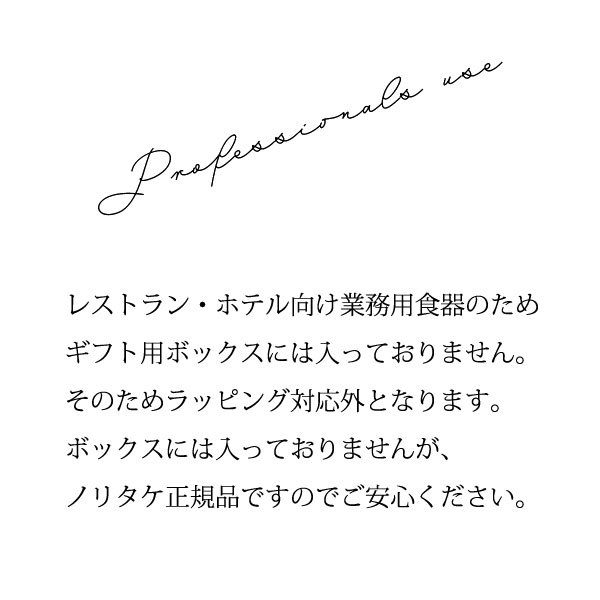 Professionals use
レストラン・ホテル向け業務用食器のため
ギフト用ボックスには入っておりません。
そのためラッピング対応外となります。
ボックスには入っておりませんが、
ノリタケ正規品ですのでご安心ください。